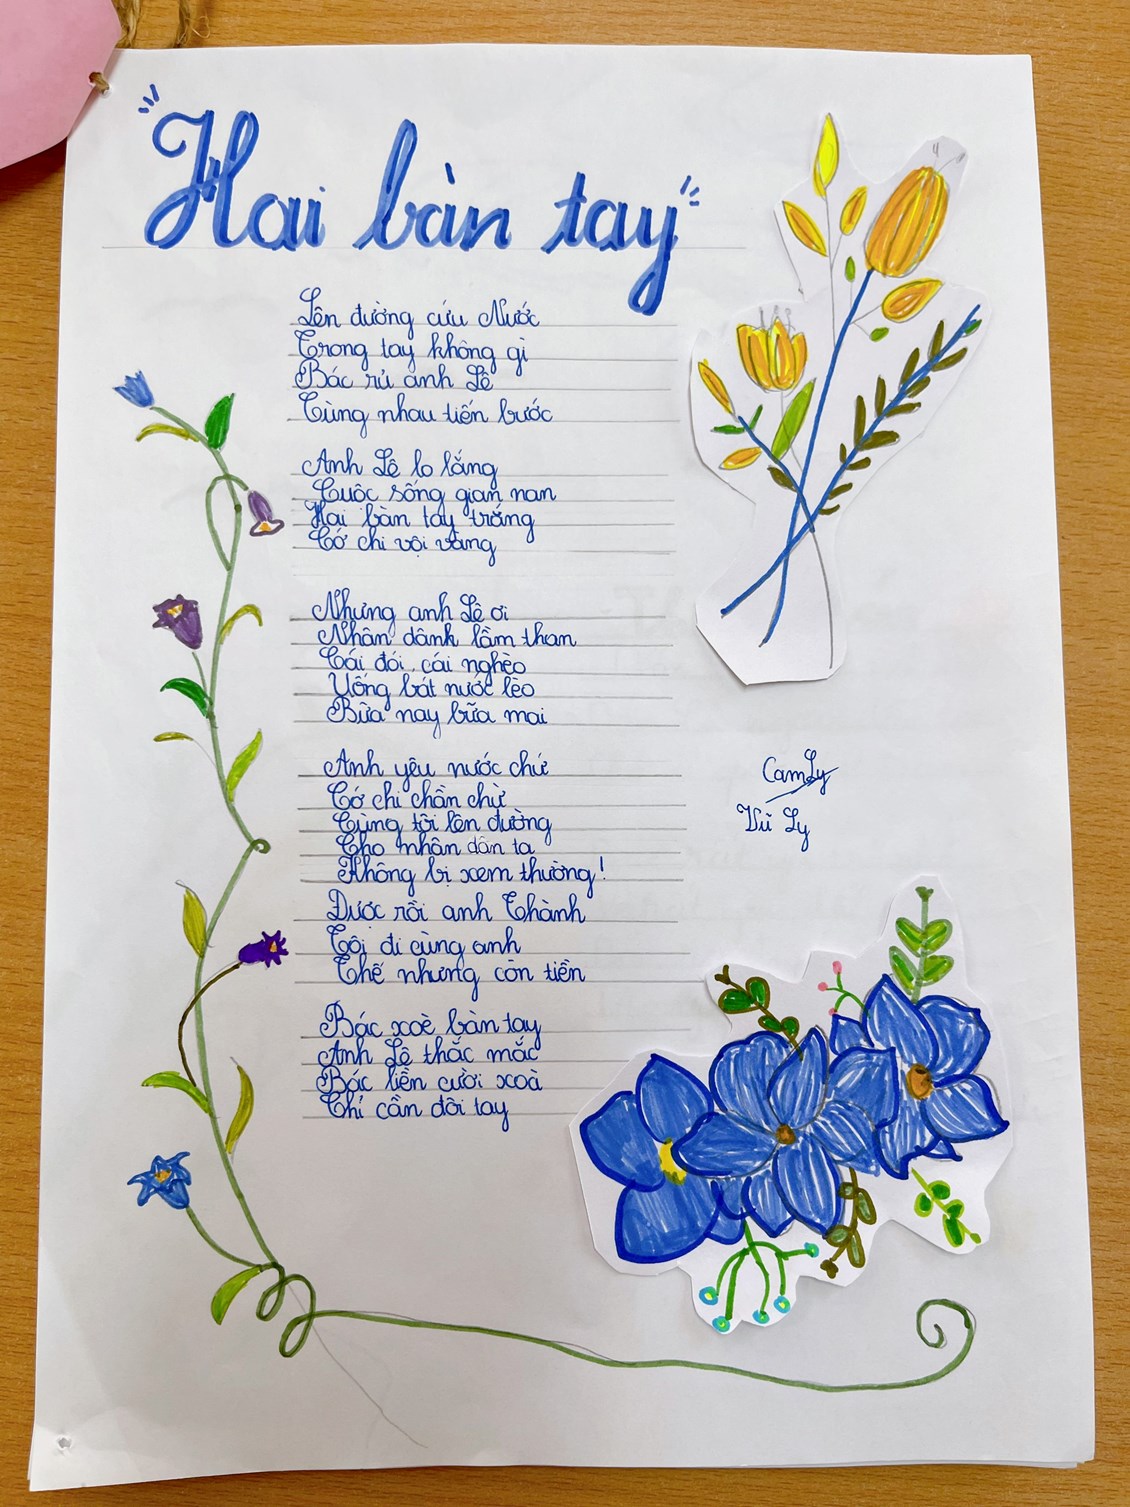 "Hai bàn tay"
Lên đường cứu Nước
Trong tay không gì
Bác rủ anh Lê
Cùng nhau tiến bước
Anh Lê lo lắng
Cuộc sống gian nan
Hai bàn tay trắng
Cớ chi vội vàng
Nhưng anh Lê ơi
Nhân dânh lầm than
Cái đói, cái nghèo
Uống bát nước lèo
Bữa nay bữa mai
Anh yêu nước chứ
Cớ chi chần chừ
Cùng tôi lên đường
Cho nhân dân ta
Không bị xem thường!
Được rồi anh Thành
Tôi đi cùng anh
Thế nhưng còn tiền
Bác xoè bàn tay
Anh Lê thắc mắc
Bác liền cười xoà
Chỉ cần đôi tay
CamLy
Vũ Ly